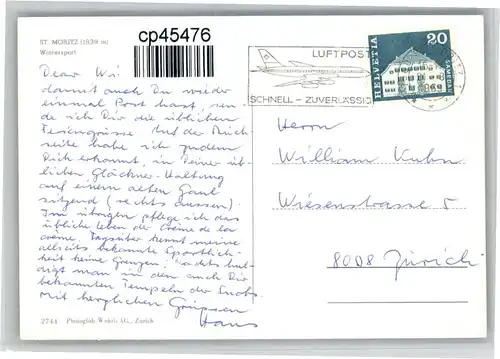 ST. MORITZ (1839 m)
Wintersport
cp45476
LUFTPOST
SCHNELL – ZUVERLÄSSIG
HELVETIA
20
SAMEDAN
Dear Wi
damit auch Du wieder
einmal Post hast, sen-
de ich Dir die üblichen
Feriengrüsse. Auf der Rück-
seite habe ich zudem
Dich erkannt, in Deiner üb-
lichen Glöckner-Haltung
auf einem alten Gaul
sitzend (rechts aussen).
Im übrigen pflege ich das
übliche leben der Crème de la
crème. Tagsüber kennt meine
allseits bekannte Sportlich-
keit keine Grenzen, nachts hul-
digt man in den auch Dir
bekannten Tempeln der Snobs.
Mit herzlichen Grüssen
Hans
Herrn
William Kuhn
Wiesenstrasse 5
8008 Zürich
2744 Photoglob-Wehrli AG., Zürich